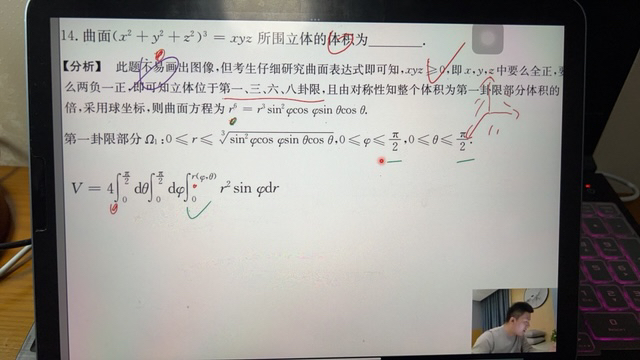 14. 曲面(x² + y² + z²)³ = xyz 所围立体的体积为________.
【分析】 此题不易画出图像,但考生仔细研究曲面表达式即可知,xyz ⩾ 0,即 x,y,z 中要么全正,要
么两负一正,即可知立体位于第一、三、六、八卦限,且由对称性知整个体积为第一卦限部分体积的
倍,采用球坐标,则曲面方程为 r⁶ = r³ sin²φcos φsin θcos θ.
第一卦限部分 Ω₁: 0 ⩽ r ⩽ ∛(sin²φcos φsin θcos θ), 0 ⩽ φ ⩽ π/2, 0 ⩽ θ ⩽ π/2.
V = 4∫₀^(π/2) dθ∫₀^(π/2) dφ∫₀^(r(φ,θ)) r² sin φdr